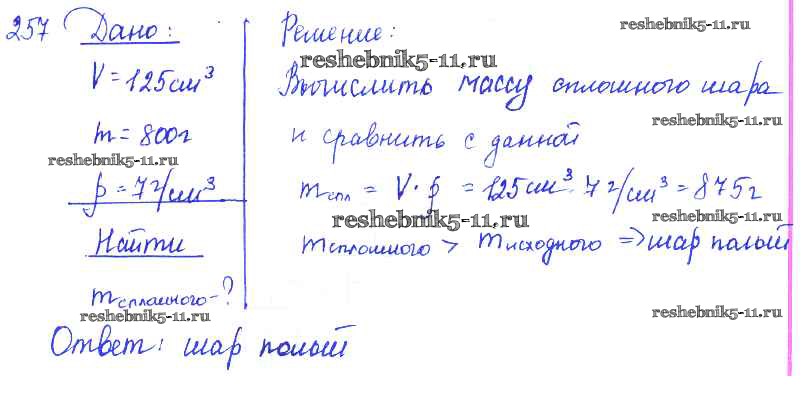 257 Дано:
V = 125 см³
m = 800 г
ρ = 7 г/см³
Найти
mсплошного - ?
Решение:
Вычислить массу сплошного шара
и сравнить с данной
mспл = V · ρ = 125 см³ · 7 г/см³ = 875 г
mсплошного > mисходного => шар полый
Ответ: шар полый
reshebnik5-11.ru
reshebnik5-11.ru
reshebnik5-11.ru
reshebnik5-11.ru
reshebnik5-11.ru
reshebnik5-11.ru
reshebnik5-11.ru
reshebnik5-11.ru